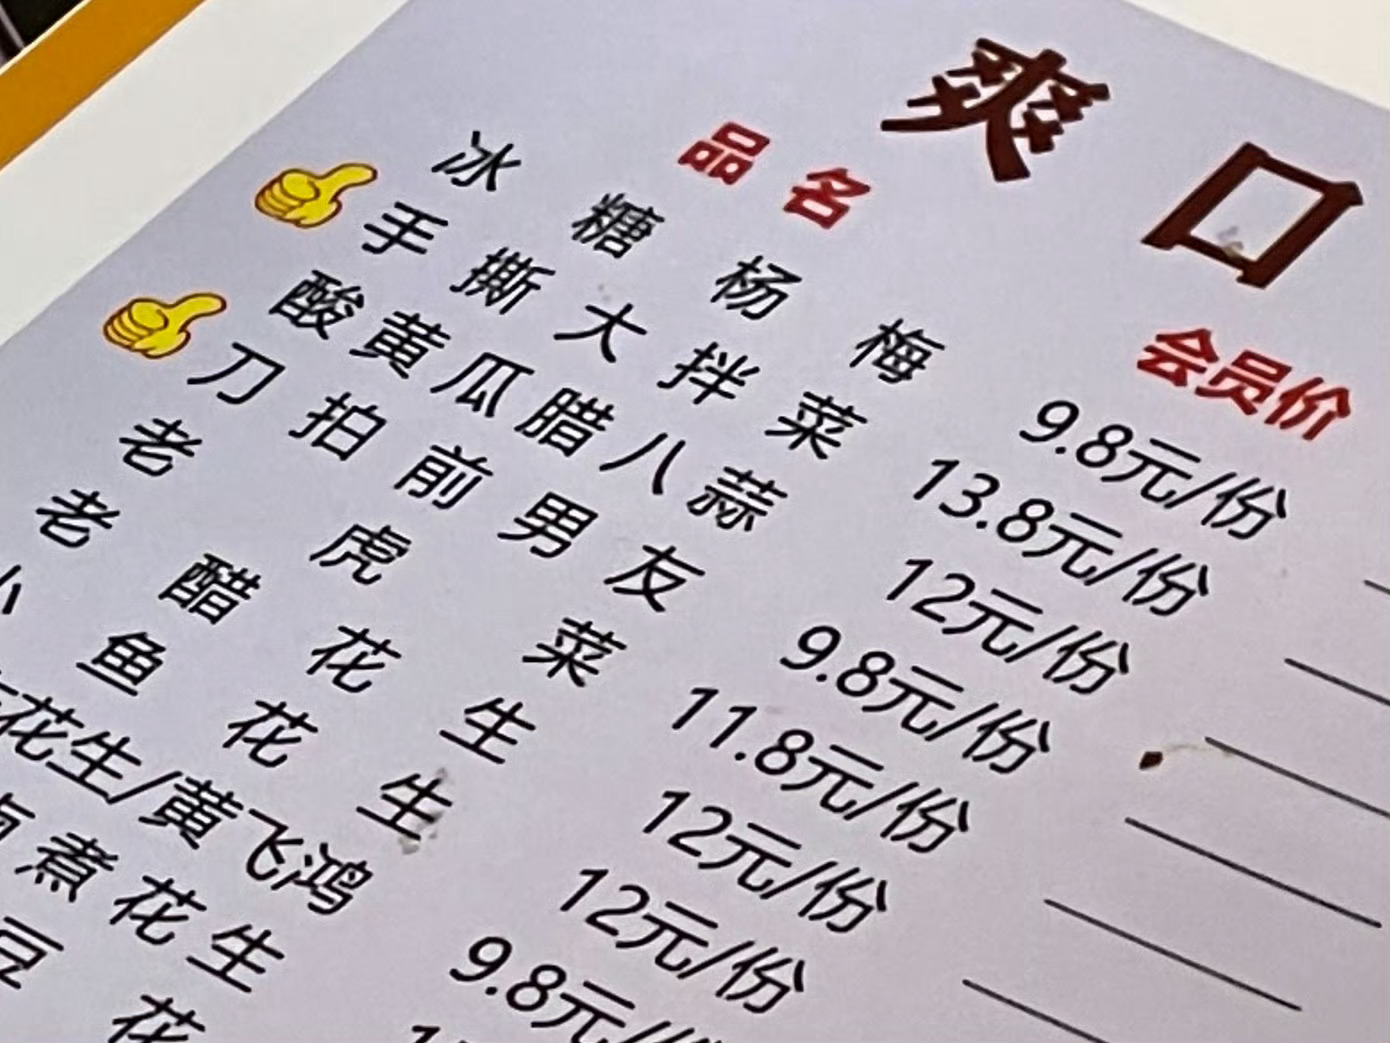 爽口
品名 会员价
冰糖杨梅 9.8元/份
手撕大拌菜 13.8元/份
酸黄瓜腊八蒜 12元/份
刀拍前男友 9.8元/份
老虎菜 11.8元/份
老醋花生 12元/份
小鱼花生 12元/份
花生/黄飞鸿 9.8元/
煮花生
豆花